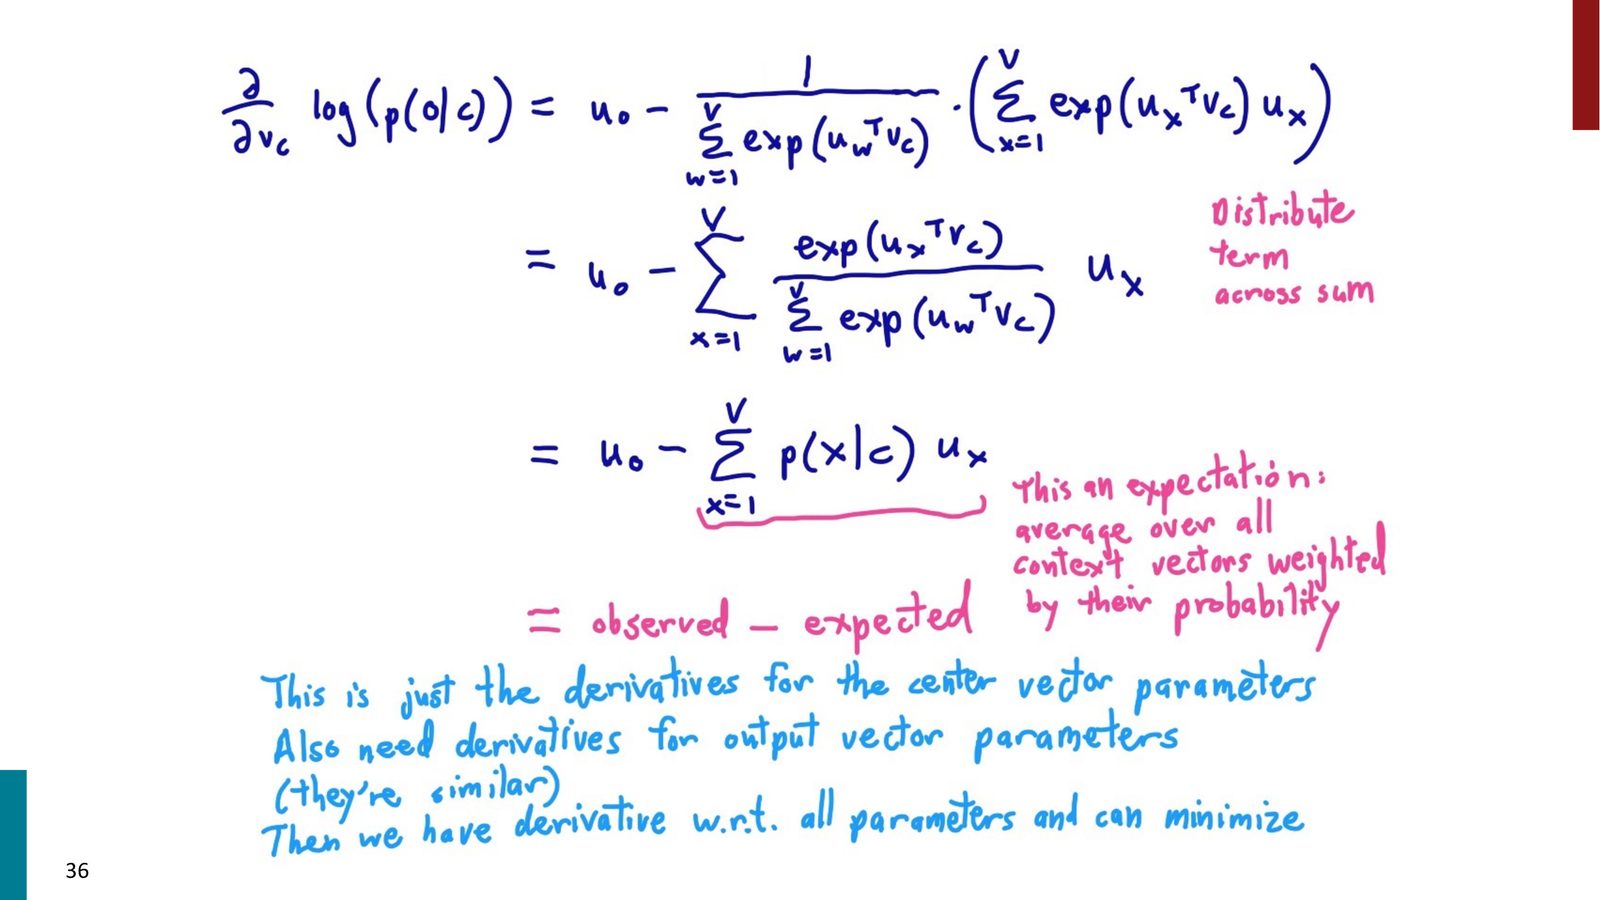 ∂/∂v_c log(p(o|c)) = u_o - 1/(∑_{w=1}^{V} exp(u_w^T v_c)) · (∑_{x=1}^{V} exp(u_x^T v_c) u_x)
= u_o - ∑_{x=1}^{V} exp(u_x^T v_c)/(∑_{w=1}^{V} exp(u_w^T v_c)) u_x
Distribute
term
across sum
= u_o - ∑_{x=1}^{V} p(x|c) u_x
This an expectation:
average over all
context vectors weighted
by their probability
= observed - expected
This is just the derivatives for the center vector parameters
Also need derivatives for output vector parameters
(they're similar)
Then we have derivative w.r.t. all parameters and can minimize
36